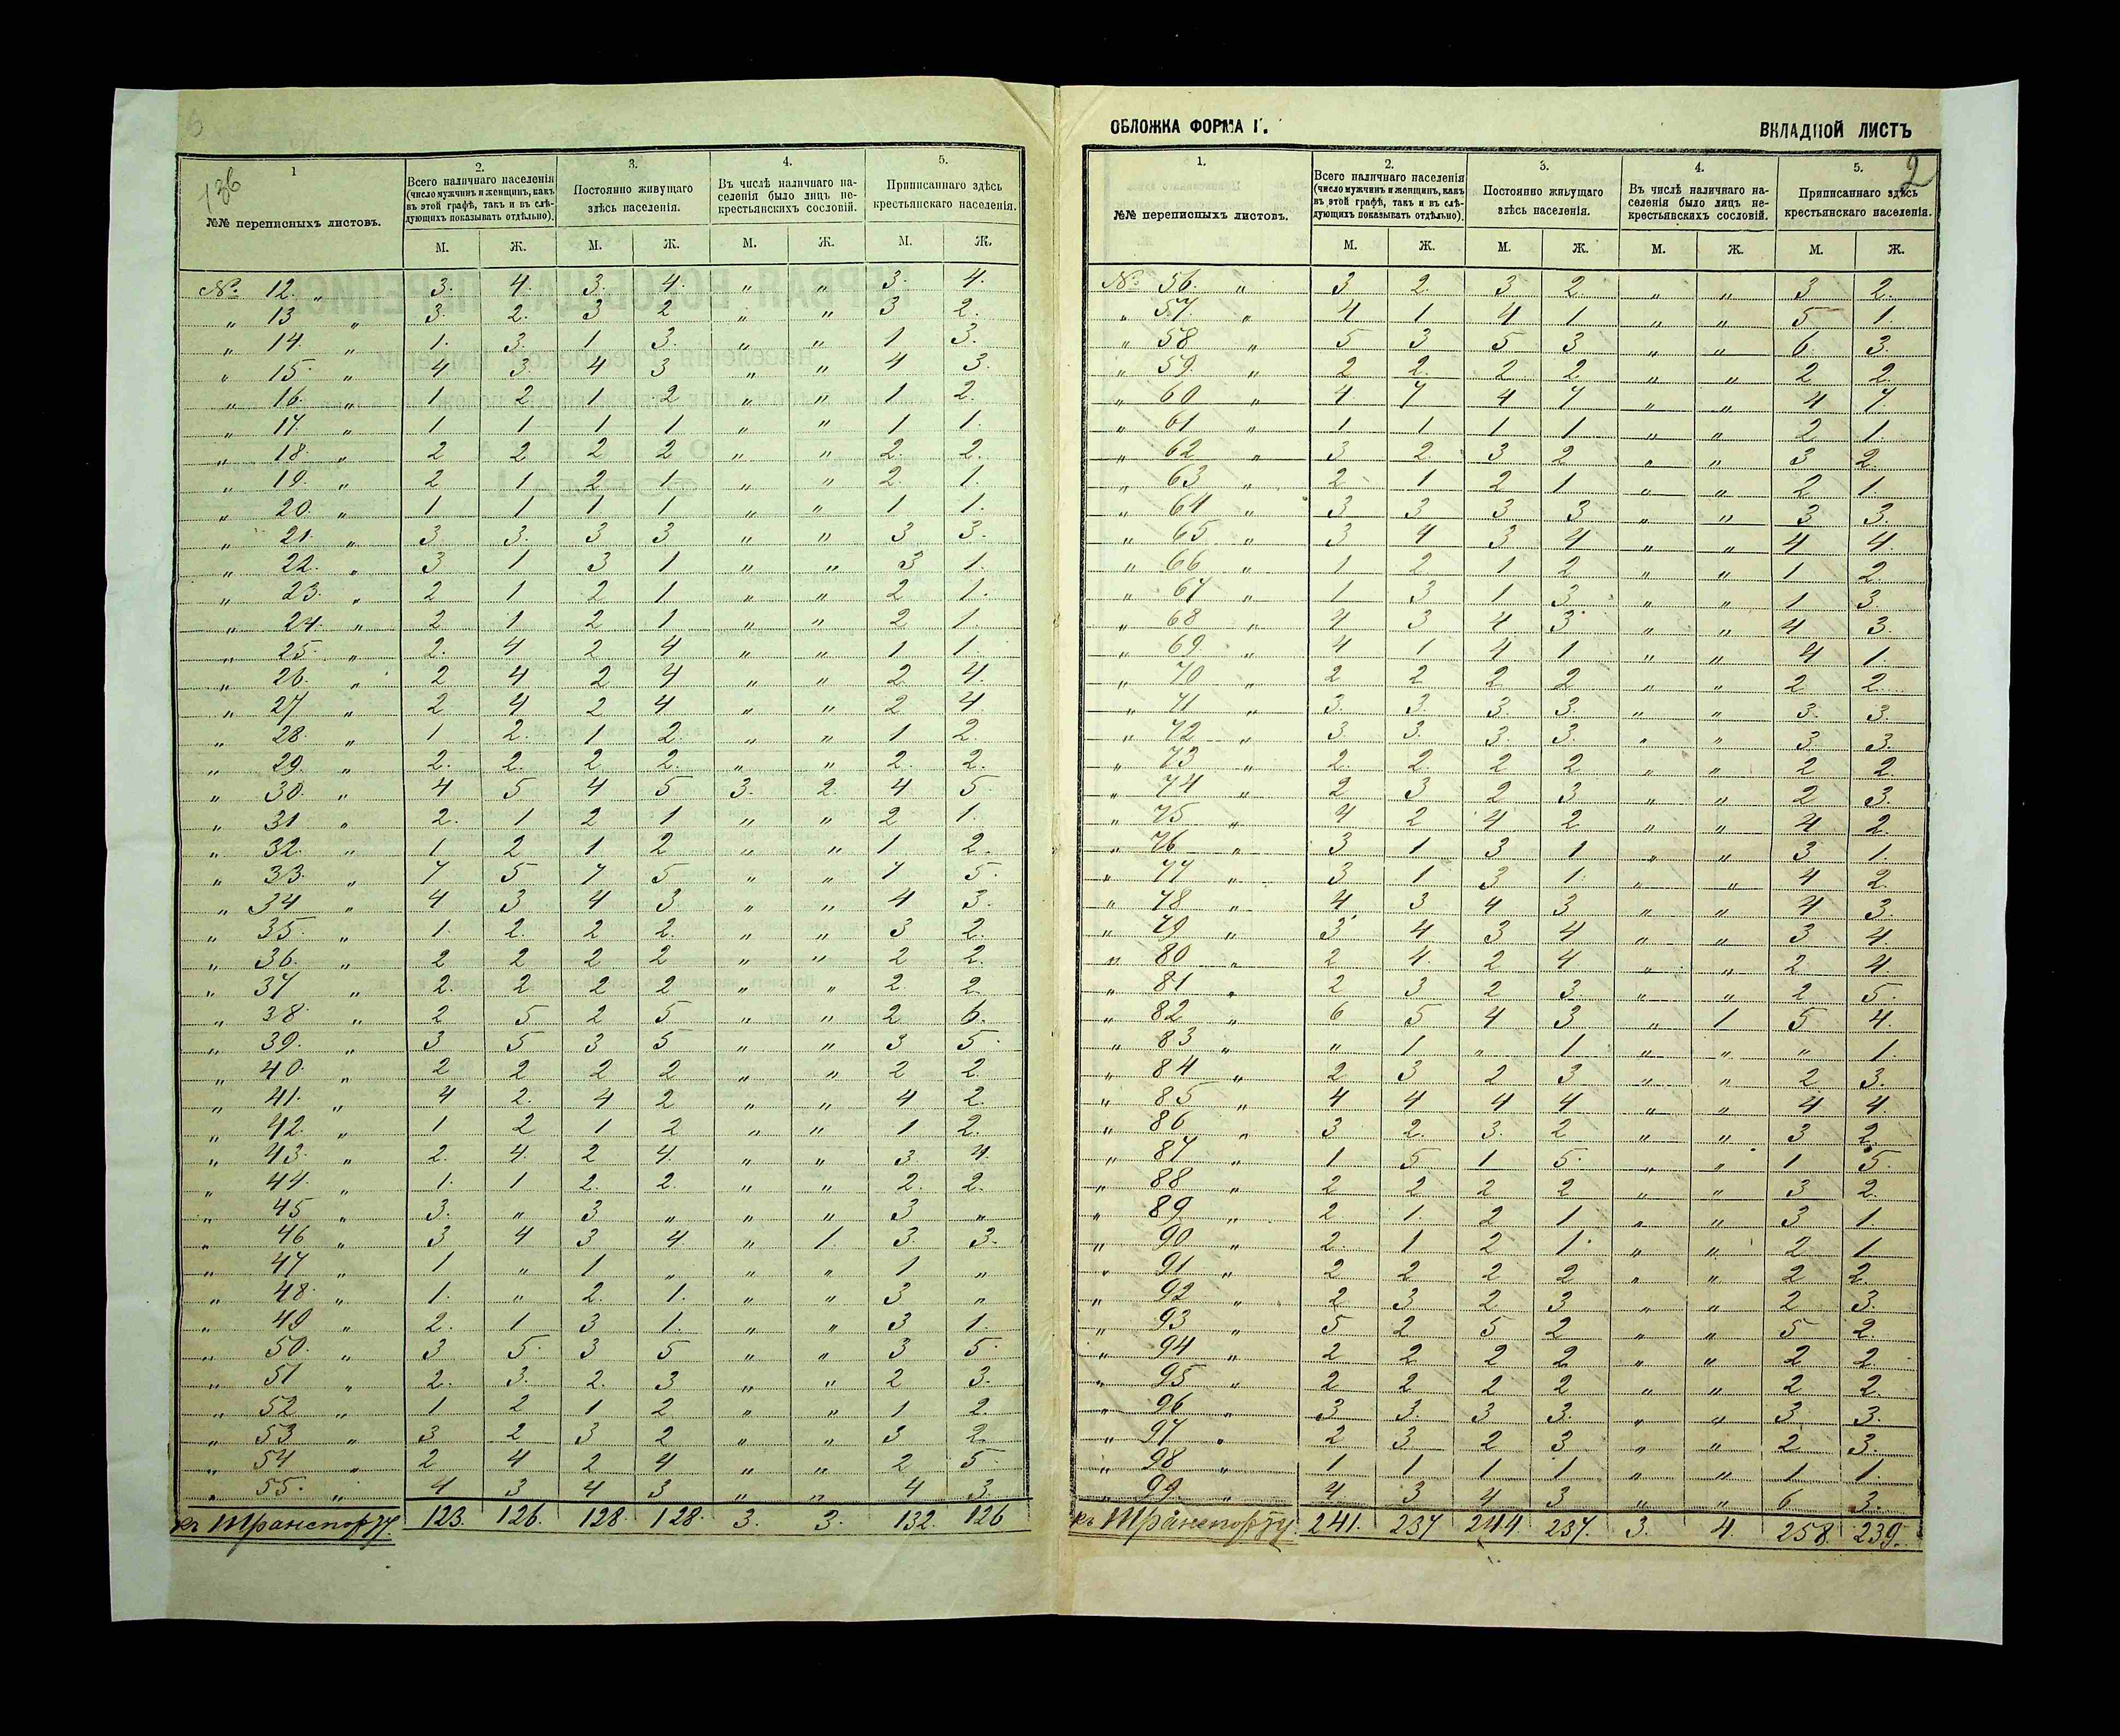 136
1
№№ переписныхъ листовъ.
2.
Всего наличнаго населенія
(число мужчинъ и женщинъ, какъ
въ этой графѣ, такъ и въ слѣ-
дующихъ показывать отдѣльно).
3.
Постоянно живущаго
здѣсь населенія.
4.
Въ числѣ наличнаго на-
селенія было лицъ не-
крестьянскихъ сословій.
5.
Приписаннаго здѣсь
крестьянскаго населенія.
М. Ж. М. Ж. М. Ж. М. Ж.
№ 12. „ 3. 4. 3. 4. „ „ 3. 4.
„ 13 „ 3. 2. 3 2 „ „ 3 2.
„ 14. „ 1. 3. 1 3. „ „ 1 3.
„ 15. „ 4 3. 4 3 „ „ 4 3.
„ 16. „ 1 2 1 2 „ „ 1 2.
„ 17. „ 1 1 1 1 „ „ 1 1.
„ 18. „ 2 2 2 2 „ „ 2. 2.
„ 19. „ 2 1 2 1 „ „ 2. 1.
„ 20. „ 1 1 1 1 „ „ 1 1.
„ 21. „ 3 3. 3 3 „ „ 3 3.
„ 22. „ 3 1 3 1 „ „ 3 1.
„ 23. „ 2 1 2 1 „ „ 2 1.
„ 24. „ 2 1 2 1 „ „ 2 1.
„ 25. „ 2. 4 2 4 „ „ 1 1.
„ 26. „ 2 4 2 4 „ „ 2 4.
„ 27 „ 2 4 2 4 „ „ 2 4.
„ 28. „ 1 2. 1 2. „ „ 1 2.
„ 29. „ 2. 2. 2 2. „ „ 2. 2.
„ 30. „ 4 5 4 5 3. 2. 4 5.
„ 31 „ 2. 1 2 1 „ „ 2 1.
„ 32. „ 1 2 1 2 „ „ 1 2.
„ 33. „ 7 5 7 5 „ „ 7 5.
„ 34 „ 4 3 4 3 „ „ 4 3.
„ 35. „ 1. 2. 2 2. „ „ 3 2.
„ 36. „ 2 2 2 2 „ „ 2 2.
„ 37 „ 2. 2 2 2 „ „ 2. 2.
„ 38. „ 2 5 2 5 „ „ 2 6.
„ 39. „ 3 5 3 5 „ „ 3 5.
„ 40. „ 2 2 2 2 „ „ 2 2.
„ 41. „ 4 2. 4 2 „ „ 4 2.
„ 42. „ 1 2 1 2 „ „ 1 2.
„ 43. „ 2. 4. 2 4. „ „ 3 4.
„ 44. „ 1. 1 2. 2. „ „ 2. 2.
„ 45 „ 3. „ 3 „ „ „ 3 „
„ 46 „ 3 4 3 4. „ 1 3. 3.
„ 47 „ 1 „ 1 „ „ „ 1 „
„ 48. „ 1. „ 2. 1. „ „ 3 „
„ 49 „ 2. 1 3 1. „ „ 3 1.
„ 50. „ 3 5. 3 5 „ „ 3 5.
„ 51 „ 2. 3. 2. 3 „ „ 2 3.
„ 52 „ 1 2 1 2 „ „ 1 2.
„ 53 „ 3 2 3 2 „ „ 3 2.
„ 54 „ 2 4 2 4 „ „ 2 5.
„ 55. „ 4 3 4 3 „ „ 4 3.
къ Транспорту. 123. 126. 128. 128. 3. 3. 132. 126
ОБЛОЖКА ФОРМА Г. ВКЛАДНОЙ ЛИСТЪ
2
1.
№№ переписныхъ листовъ.
2.
Всего наличнаго населенія
(число мужчинъ и женщинъ, какъ
въ этой графѣ, такъ и въ слѣ-
дующихъ показывать отдѣльно).
3.
Постоянно живущаго
здѣсь населенія.
4.
Въ числѣ наличнаго на-
селенія было лицъ не-
крестьянскихъ сословій.
5.
Приписаннаго здѣсь
крестьянскаго населенія.
М. Ж. М. Ж. М. Ж. М. Ж.
№ 56. „ 3 2. 3 2 „ „ 3 2.
„ 57. „ 4 1 4 1 „ „ 5 1.
„ 58 „ 5 3 5 3 „ „ 6. 3.
„ 59. „ 2 2. 2 2 „ „ 2 2.
„ 60 „ 4 7 4 7 „ „ 4 7.
„ 61 „ 1 1 1 1 „ „ 2 1.
„ 62 „ 3 2 3 2 „ „ 3 2.
„ 63 „ 2 1 2 1 „ „ 2 1.
„ 64 „ 3 3 3 3 „ „ 3 3.
„ 65 „ 3 4 3 4 „ „ 4 4.
„ 66 „ 1 2 1 2 „ „ 1 2.
„ 67 „ 1 3 1 3. „ „ 1 3.
„ 68 „ 4 3 4 3. „ „ 4 3.
„ 69. „ 4 1 4 1 „ „ 4 1.
„ 70 „ 2 2 2 2 „ „ 2 2.
„ 71 „ 3. 3. 3 3. „ „ 3. 3.
„ 72 „ 3. 3. 3. 3. „ „ 3. 3.
„ 73 „ 2. 2. 2 2 „ „ 2 2.
„ 74 „ 2 3 2 3 „ „ 2 3.
„ 75 „ 4 2 4 2 „ „ 4 2.
„ 76 „ 3 1 3 1 „ „ 3 1.
„ 77 „ 3 1 3 1. „ „ 4 2.
„ 78 „ 4 3 4 3 „ „ 4 3.
„ 79 „ 3 4 3 4 „ „ 3 4.
„ 80 „ 2 4. 2 4 „ „ 2 4.
„ 81 „ 2 3 2 3 „ „ 2 5.
„ 82 „ 6 5 4 3 „ 1 5 4.
„ 83 „ „ 1 „ 1 „ „ „ 1.
„ 84 „ 2 3 2 3 „ „ 2 3.
„ 85 „ 4 4 4 4 „ „ 4 4.
„ 86 „ 3 2. 3. 2 „ „ 3 2.
„ 87 „ 1 5 1 5. „ „ 1 5.
„ 88 „ 2 2 2 2 „ „ 3 2.
„ 89 „ 2 1 2 1 „ „ 3 1.
„ 90 „ 2. 1 2 1. „ „ 2 1
„ 91 „ 2 2 2 2 „ „ 2 2.
„ 92 „ 2 3 2 3 „ „ 2 3.
„ 93 „ 5 2 5 2 „ „ 5 2.
„ 94 „ 2 2 2 2 „ „ 2 2.
„ 95 „ 2 2 2 2 „ „ 2 2.
„ 96 „ 3 3. 3 3. „ „ 3 3.
„ 97 „ 2 3 2 3 „ „ 2 3.
„ 98 „ 1 1 1 1 „ „ 1 1.
„ 99. „ 4 3 4 3 „ „ 6 3.
къ Транспорту. 241. 237 244 237. 3. 4. 258. 239.